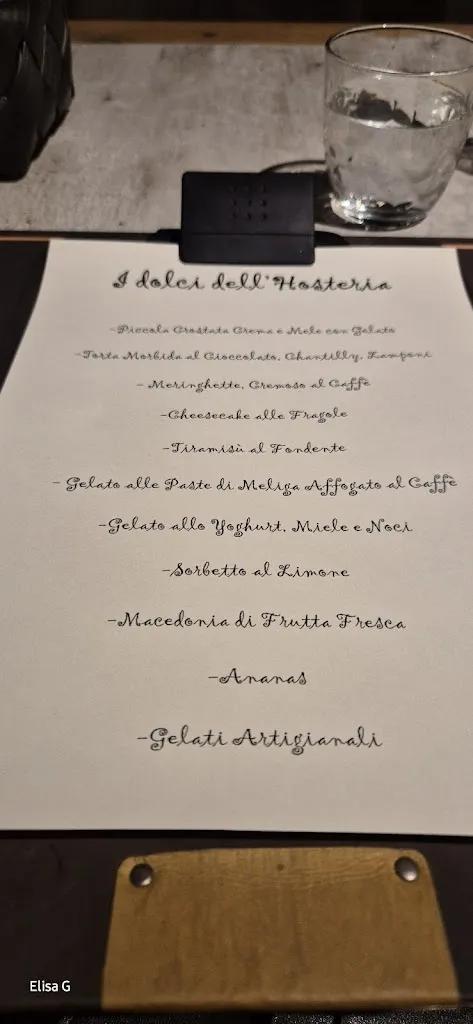 I dolci dell'Hosteria
-Piccola Crostata Crema e Mele con Gelato
-Torta Morbida al Cioccolato, Chantilly, Lamponi
- Meringhette, Cremoso al Caffè
-Cheesecake alle Fragole
-Tiramisù al Fondente
- Gelato alle Paste di Meliga Affogato al Caffè
-Gelato allo Yoghurt, Miele e Noci
-Sorbetto al Limone
-Macedonia di Frutta Fresca
-Ananas
-Gelati Artigianali
Elisa G